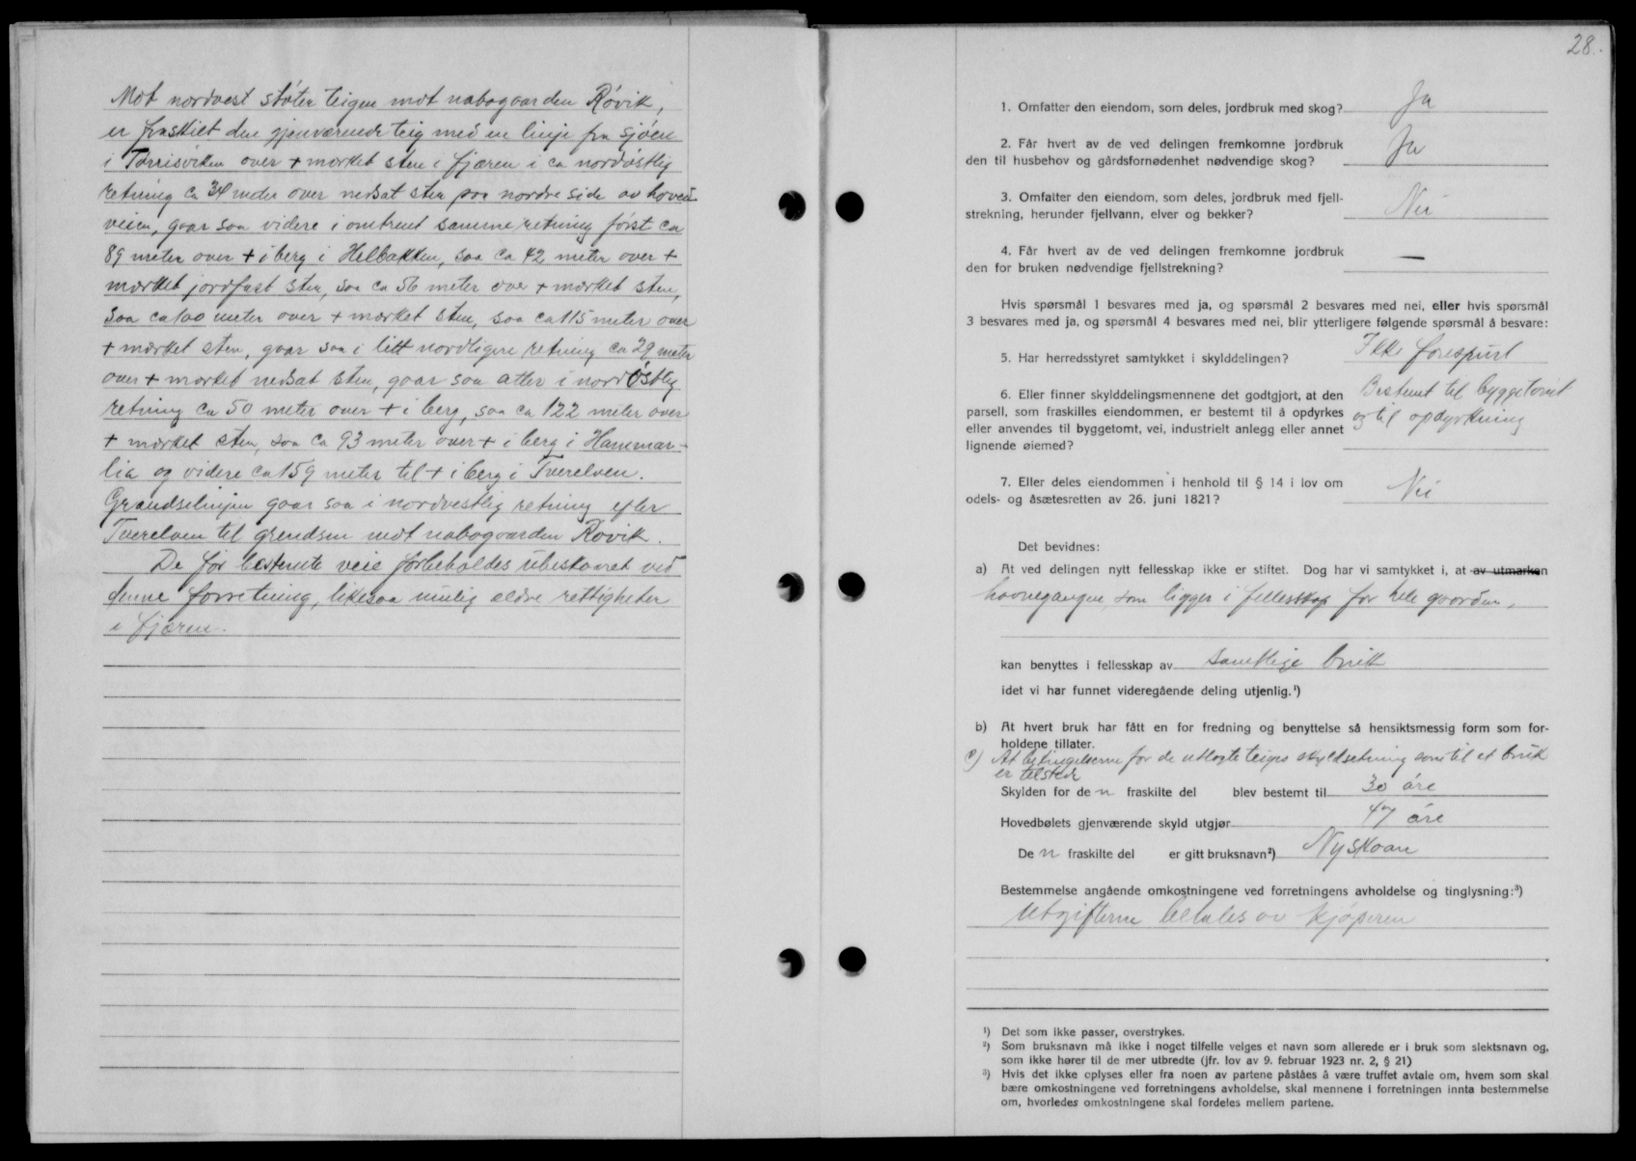 Mot nordvest støter teigen mot nabogaarden Røvik,
er fraskilt den gjenværende teig med en linje fra sjøen
i Torrisviken over + mærket sten i fjæren i ca nordøstlig
retning ca 34 meter over nedsat sten paa nordre side av hoved-
veien, gaar saa videre i omtrent samme retning først ca
89 meter over + i berg i Helbakken, saa ca 42 meter over +
mærket jordfast sten, saa ca 56 meter over + mærket sten,
saa ca 100 meter over + mærket sten, saa ca 115 meter over
+ mærket sten, gaar saa i litt nordligere retning ca 29 meter
over + mærket nedsat sten, gaar saa atter i nordøstlig
retning ca 50 meter over + i berg, saa ca 122 meter over
+ mærket sten, saa ca 93 meter over + i berg i Hammar-
lia og videre ca 159 meter til + i berg i Tverelven.
Grændselinjen gaar saa i nordvestlig retning efter
Tverelven til grendsen mot nabogaarden Røvik.
De før bestemte veie forbeholdes ubeskaaret ved
denne forretning, likesaa mulig ældre rettigheter
i fjæren.
28.
1. Omfatter den eiendom, som deles, jordbruk med skog? Ja
2. Får hvert av de ved delingen fremkomne jordbruk
den til husbehov og gårdsfornødenhet nødvendige skog? Ja
3. Omfatter den eiendom, som deles, jordbruk med fjell-
strekning, herunder fjellvann, elver og bekker? Nei
4. Får hvert av de ved delingen fremkomne jordbruk
den for bruken nødvendige fjellstrekning? —
Hvis spørsmål 1 besvares med ja, og spørsmål 2 besvares med nei, eller hvis spørsmål
3 besvares med ja, og spørsmål 4 besvares med nei, blir ytterligere følgende spørsmål å besvare:
5. Har herredsstyret samtykket i skylddelingen? Ikke forespurt
6. Eller finner skylddelingsmennene det godtgjort, at den Bestemt til byggetomt
parsell, som fraskilles eiendommen, er bestemt til å opdyrkes og til opdyrkning
eller anvendes til byggetomt, vei, industrielt anlegg eller annet
lignende øiemed?
7. Eller deles eiendommen i henhold til § 14 i lov om
odels- og åsætesretten av 26. juni 1821? Nei
Det bevidnes:
a) At ved delingen nytt fellesskap ikke er stiftet. Dog har vi samtykket i, at av utmarken
havnegangen, som ligger i fellesskap for hele gaarden,
kan benyttes i fellesskap av samtlige bruk
idet vi har funnet videregående deling utjenlig.¹)
b) At hvert bruk har fått en for fredning og benyttelse så hensiktsmessig form som for-
holdene tillater.
c) At betingelserne for de utlagte teiges skyldsetning som til et bruk
er tilstede
Skylden for den fraskilte del blev bestemt til 30 øre
Hovedbølets gjenværende skyld utgjør 47 øre
Den fraskilte del er gitt bruksnavn²) Nyskoan
Bestemmelse angående omkostningene ved forretningens avholdelse og tinglysning:³)
Utgifterne betales av kjøperen
¹) Det som ikke passer, overstrykes.
²) Som bruksnavn må ikke i noget tilfelle velges et navn som allerede er i bruk som slektsnavn og,
som ikke hører til de mer utbredte (jfr. lov av 9. februar 1923 nr. 2, § 21)
³) Hvis det ikke oplyses eller fra noen av partene påståes å være truffet avtale om, hvem som skal
bære omkostningene ved forretningens avholdelse, skal mennene i forretningen innta bestemmelse
om, hvorledes omkostningene skal fordeles mellem partene.